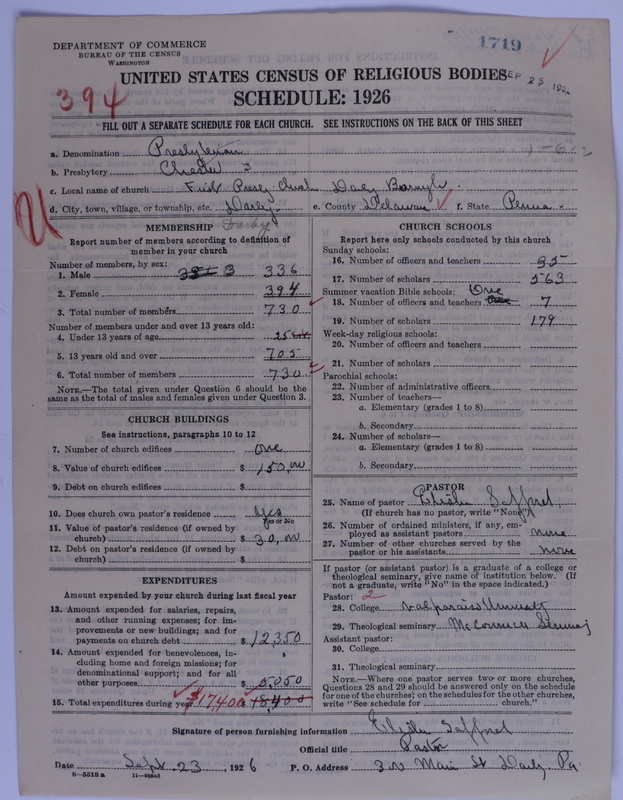 DEPARTMENT OF COMMERCE
BUREAU OF THE CENSUS
WASHINGTON
1719
UNITED STATES CENSUS OF RELIGIOUS BODIES
SEP 25 192
394
SCHEDULE: 1926
FILL OUT A SEPARATE SCHEDULE FOR EACH CHURCH. SEE INSTRUCTIONS ON THE BACK OF THIS SHEET
a. Denomination Presbyterian
b. Presbytery Chester 3
c. Local name of church First Presby. Church Darby
d. City, town, village, or township, etc. Darby e. County Delaware f. State Penna
Darby
MEMBERSHIP
Report number of members according to definition of member in your church
Number of members, by sex:
1. Male 336
2. Female 394
3. Total number of members 730
Number of members under and over 13 years old:
4. Under 13 years of age 25
5. 13 years old and over 705
6. Total number of members 730
NOTE.—The total given under Question 6 should be the same as the total of males and females given under Question 3.
CHURCH BUILDINGS
See instructions, paragraphs 10 to 12
7. Number of church edifices One
8. Value of church edifices $ 150,00
9. Debt on church edifices $
10. Does church own pastor's residence Yes
Yes or No
11. Value of pastor's residence (if owned by church) $ 30,00
12. Debt on pastor's residence (if owned by church) $
EXPENDITURES
Amount expended by your church during last fiscal year
13. Amount expended for salaries, repairs, and other running expenses; for improvements or new buildings; and for payments on church debt $ 12,350
14. Amount expended for benevolences, including home and foreign missions; for denominational support; and for all other purposes $ 5,050
15. Total expenditures during year $17400 $ 18,400
CHURCH SCHOOLS
Report here only schools conducted by this church
Sunday schools:
16. Number of officers and teachers 35
17. Number of scholars 563
Summer vacation Bible schools: One
18. Number of officers and teachers 7
19. Number of scholars 179
Week-day religious schools:
20. Number of officers and teachers
21. Number of scholars
Parochial schools:
22. Number of administrative officers
23. Number of teachers—
a. Elementary (grades 1 to 8)
b. Secondary
24. Number of scholars—
a. Elementary (grades 1 to 8)
b. Secondary
PASTOR
25. Name of pastor Saffret
(If church has no pastor, write "None")
26. Number of ordained ministers, if any, employed as assistant pastors none
27. Number of other churches served by the pastor or his assistants none
If pastor (or assistant pastor) is a graduate of a college or theological seminary, give name of institution below. (If not a graduate, write "No" in the space indicated.)
Pastor: 2
28. College Valparaiso University
29. Theological seminary McCormick Seminary
Assistant pastor:
30. College
31. Theological seminary
NOTE.—Where one pastor serves two or more churches, Questions 28 and 29 should be answered only on the schedule for one of the churches; on the schedules for the other churches, write "See schedule for church."
Signature of person furnishing information Saffret
Official title Pastor
Date Sept. 23, 1926 P. O. Address Main St Darby, Pa
8—5518 a 11—9084d